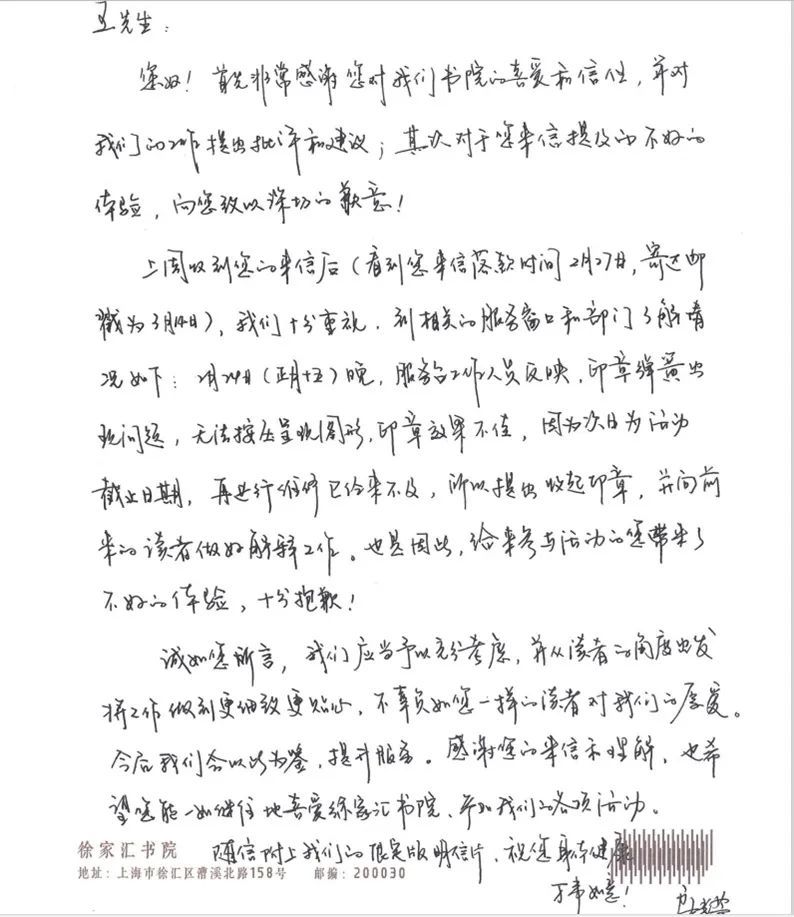 王先生：
您好！首先非常感谢您对我们书院的喜爱和信任，并对
我们的工作提出批评和建议；其次对于您来信提及的不好的
体验，向您致以深切的歉意！
上周收到您的来信后（看到您来信落款时间2月27日，寄达邮
戳为3月14日），我们十分重视，到相关的服务窗口和部门了解情
况如下：2月24日（正月十五）晚，服务台工作人员反映，印章弹簧出
现问题，无法按压呈现图形，印章效果不佳，因为次日为活动
截止日期，再进行维修已经来不及，所以提出收起印章，并向前
来的读者做好解释工作。也是因此，给来参与活动的您带来了
不好的体验，十分抱歉！
诚如您所言，我们应当予以充分考虑，并从读者的角度出发
将工作做到更细致更贴心，不辜负如您一样的读者对我们的厚爱。
今后我们会以此为鉴，提升服务。感谢您的来信和理解，也希
望您能一如继往地喜爱徐家汇书院，参加我们的各项活动。
随信附上我们的限定版明信片，祝您身体健康
万事如意！
徐家汇书院
地址：上海市徐汇区漕溪北路158号 邮编：200030